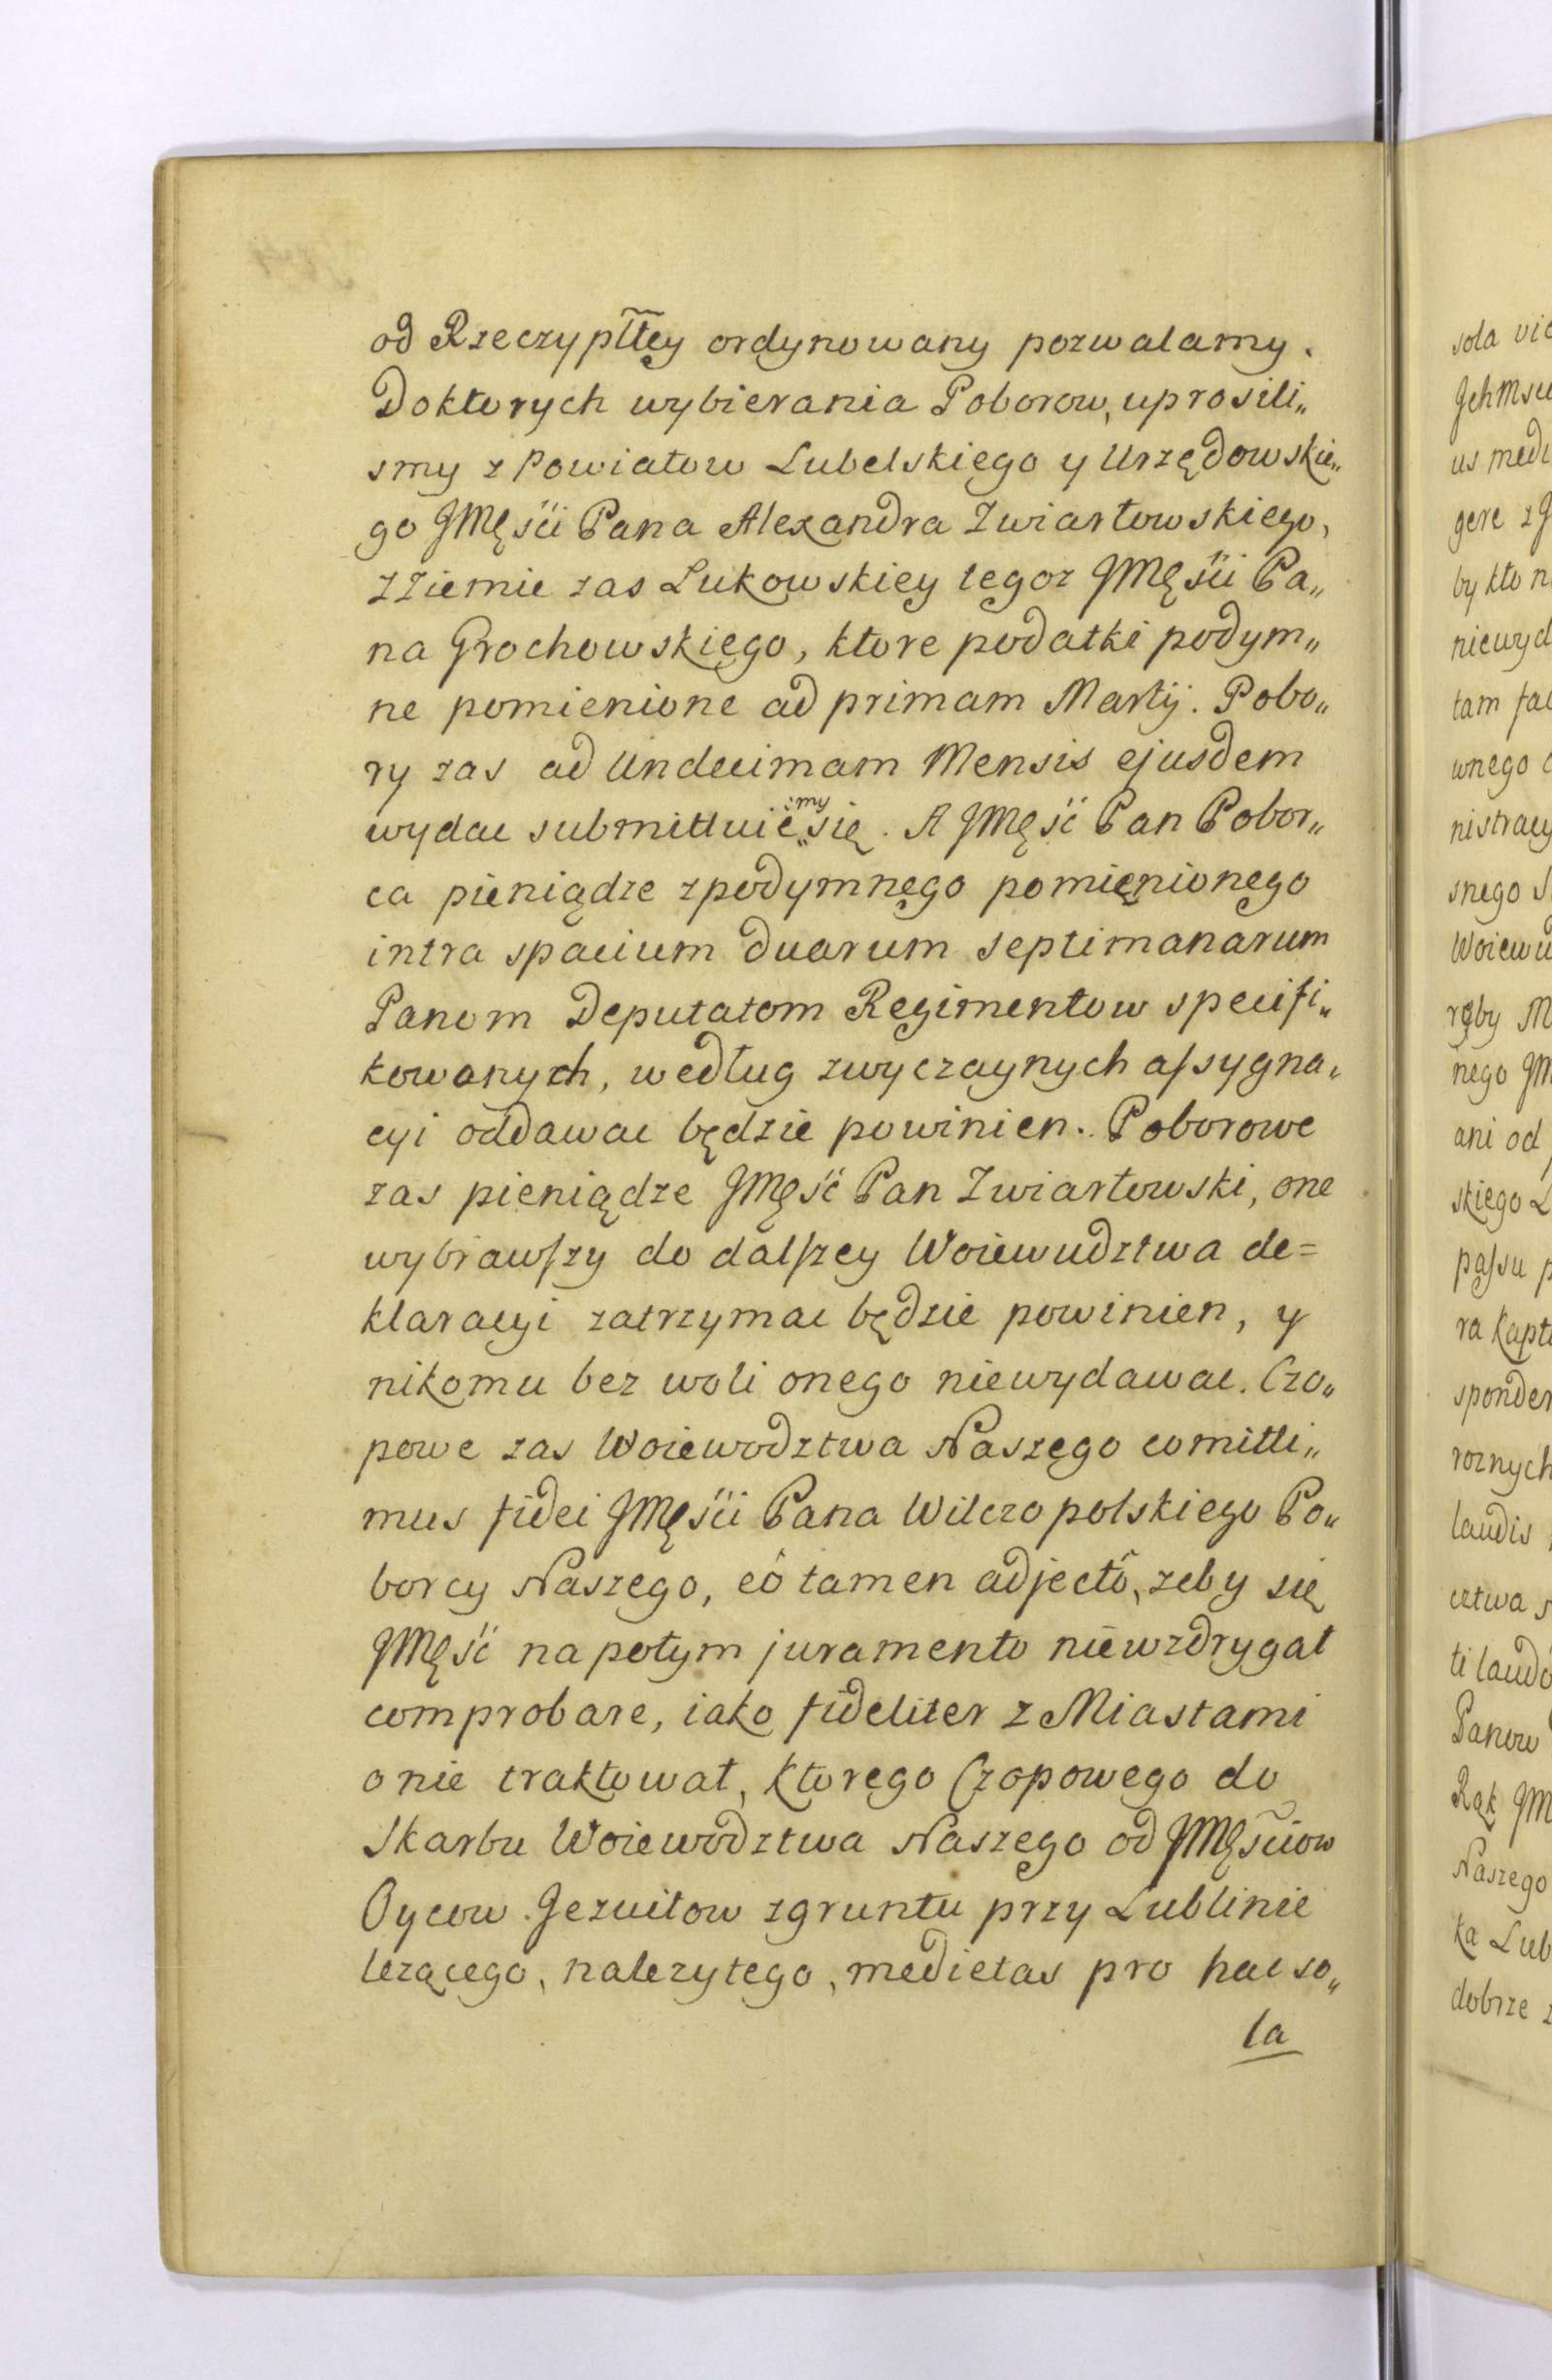 od Rzeczypltey ordynowany pozwalamy.
Doktorych wybierania Poborow, uprosili„
smy z Powiatow Lubelskiego y Urzędowskie„
go JMęści Pana Alexandra Zwiartowskiego,
z Ziemie zas Lukowskiey tegoz JMęści Pa„
na Grochowskiego, ktore podatki podym„
ne pomienione ad primam Martij. Pobo„
ry zas ad Undecimam Mensis ejusdem
wydac submittuiemy się. A JMęść Pan Pobor„
ca pieniądze zpodymnego pomięnionego
intra spacium duarum septimanarum
Panom Deputatom Regimentow specifi„
kowanych, według zwyczaynych aſsygna„
cyi oddawac będzie powinien. Poborowe
zas pieniądze JMęść Pan Zwiartowski, one
wybrawſzy do dalſzey Woiewudztwa de=
klaracyi zatrzymac będzie powinien, y
nikomu bez woli onego niewydawac. Czo„
powe zas Woiewodztwa Naszego comitti„
mus fidei JMęści Pana Wilczopolskiego Po„
borcy Naszego, eô tamen adjectô, zeby się
JMęść napotym juramento niewzdrygał
comprobare, iako fideliter z Miastami
o nie traktował, ktorego Czopowego do
Skarbu Woiewodztwa Naszego od JMęściow
Oycow Jezuitow zgruntu przy Lublinie
lezącego, nalezytego, medietas pro hac so„
la
sola vic
Jchmsc
us medi
gere z J
by kto n
niewyd
tam fac
wnego
nistracy
snego S
Woiewu
nego JM
ani od
skiego L
paſsu p
ra Kapt
sponden
roznych
laudis
cztwa
ti laudo
Panow
Rąk JM
Naszego
ka Lub
dobrze z